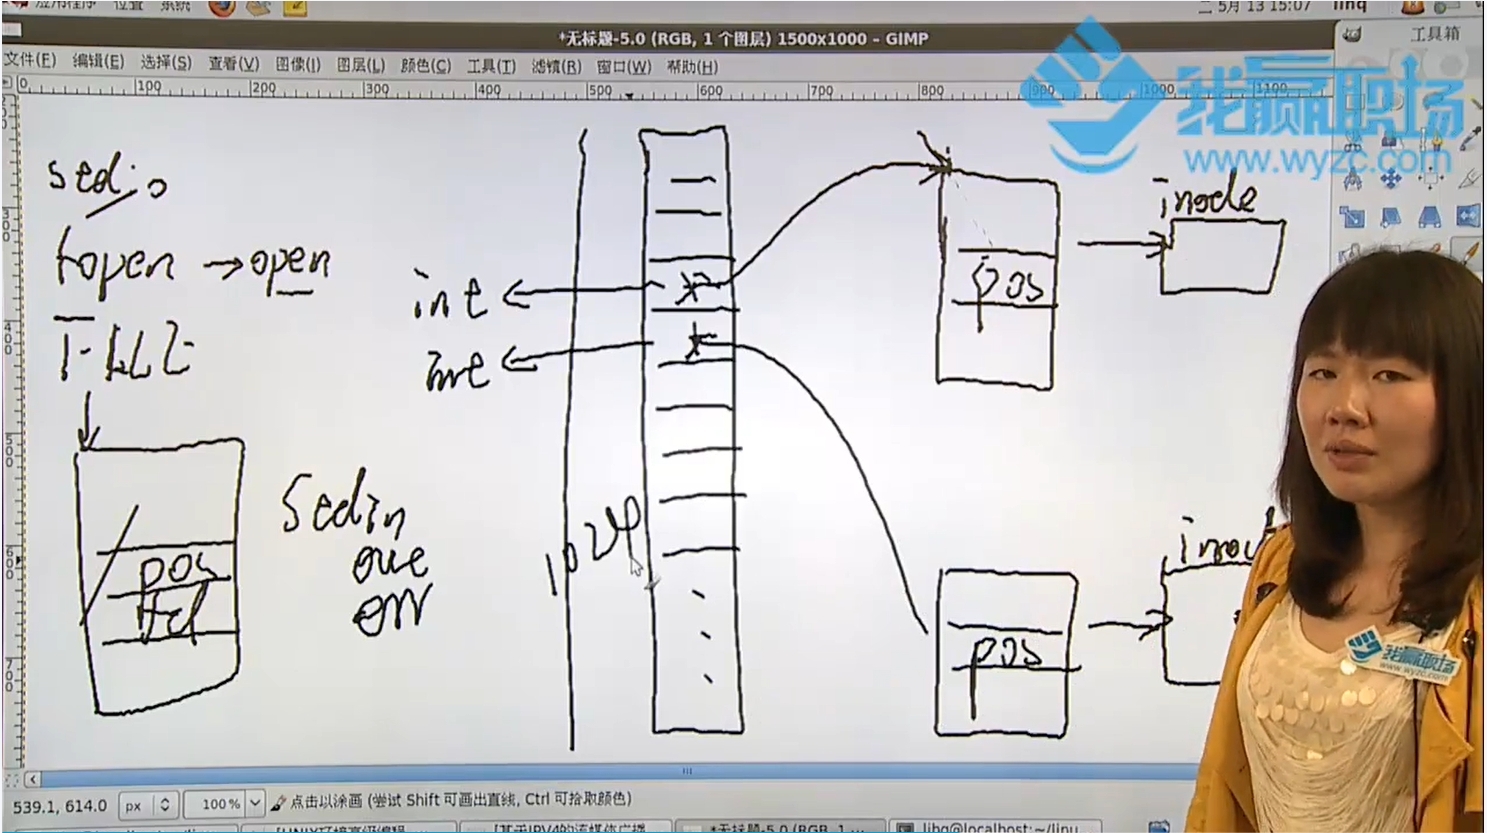 应用程序 位置 系统
二 5月 13 15:07 linq
*无标题-5.0 (RGB, 1 个图层) 1500x1000 – GIMP
工具箱
文件(F) 编辑(E) 选择(S) 查看(V) 图像(I) 图层(L) 颜色(C) 工具(T) 滤镜(R) 窗口(W) 帮助(H)
0 100 200 300 400 500 600 700 800 900 1000 1100
我赢职场
www.wyzc.com
stdio
fopen → open
FILE
int
int
pos
inode
stdin
out
err
1024
pos
fd
pos
我赢职场
www.wyzc.com
539.1, 614.0 px 100% 点击以涂画 (尝试 Shift 可画出直线, Ctrl 可拾取颜色)
[UNIX环境高级编程
[基于IPV4的流媒体广播
*无标题-5.0 (RGB, 1 ...
linq@localhost:~/linu...